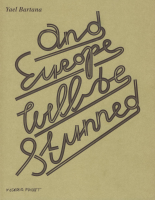 Yael Bartana
and
Europe
will be
Stunned